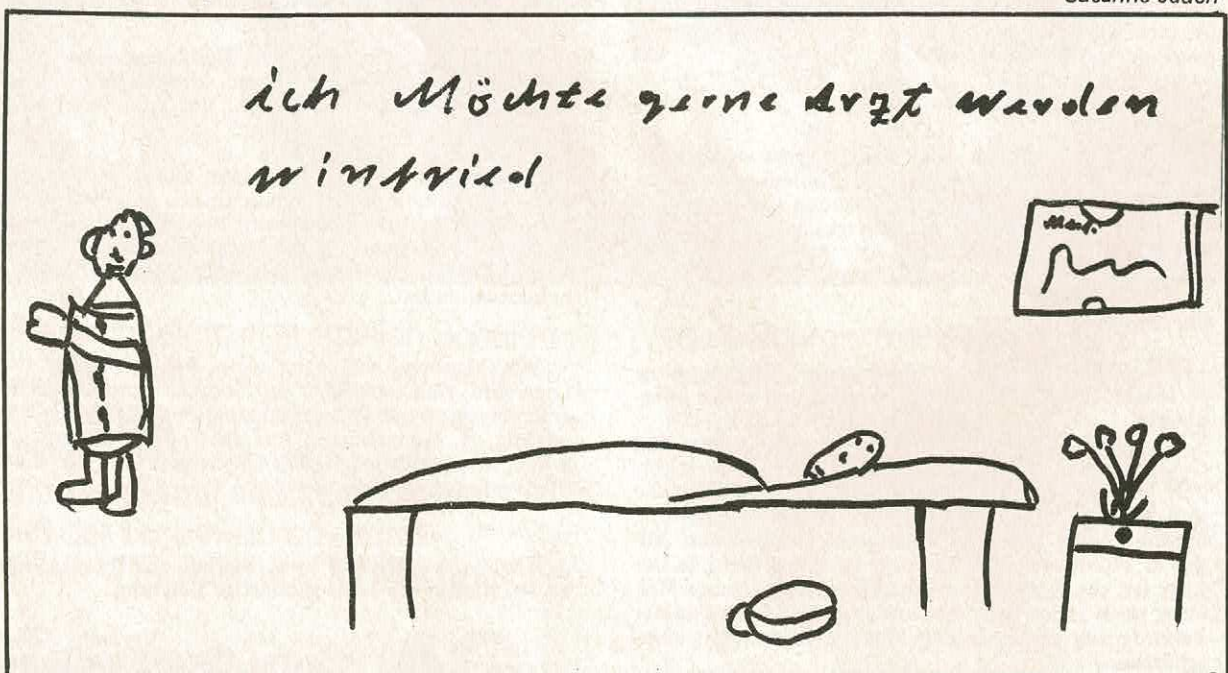 ich Möchte gerne Arzt werden
winfried